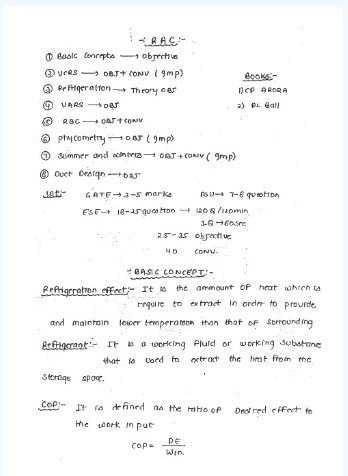 :- RAC:-
① Basic concepts → objective
② VCRS → OBJ + CONV (imp)
③ Refrigeration → Theory OBJ
④ VARS → OBJ
⑤ RBC → OBJ + CONV
⑥ phycometry → OBJ (imp)
⑦ summer and winters → OBJ + CONV (imp)
⑧ Duct Design → OBJ
Books:-
1) CP ARORA
2) PL Ball
GATE → 3-5 marks
PSU → 7-8 question
ESE → 18-25 question → 120 Q/120min
1Q → 60sec
25-35 objective
40 CONV.
:- BASIC CONCEPT:-
Refrigeration effect:- It is the ammount OF heat which is
require to extract in order to provide
and maintain lower temperature than that of sorrounding
Refrigerant:- It is a working fluid or working Substance
that is used to extract the heat from the
storage space.
COP:- It is defined as the ratio of Desired effect to
the work in put
COP = DE / Win.